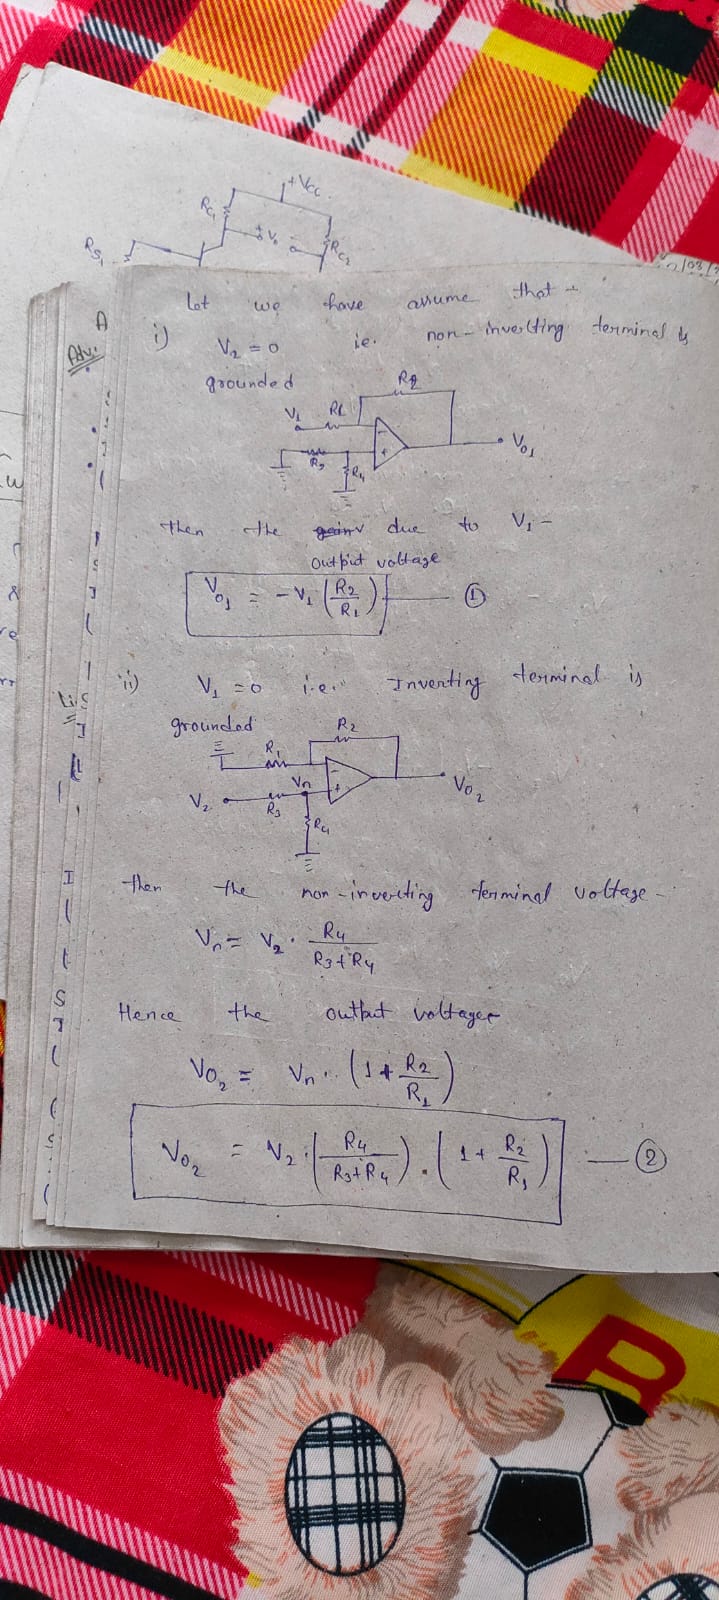 +Vcc
RC1
Vo
RC2
RS1
Let we have assume that -
A
Adv:
i) V2 = 0 i.e. non-inverting terminal is
grounded
R2
V1 R1
Vo1
R3
R4
then the due to V1 -
output voltage
Vo1 = - V1 (R2/R1) — ①
ii) V1 = 0 i.e. Inverting terminal is
grounded
R2
R1
Vn
V2
R3
Vo2
R4
then the non-inverting terminal voltage -
Vn = V2 . R4/(R3+R4)
Hence the output voltage
Vo2 = Vn . (1 + R2/R1)
Vo2 = V2 . (R4/(R3+R4)) . (1 + R2/R1) — ②
B